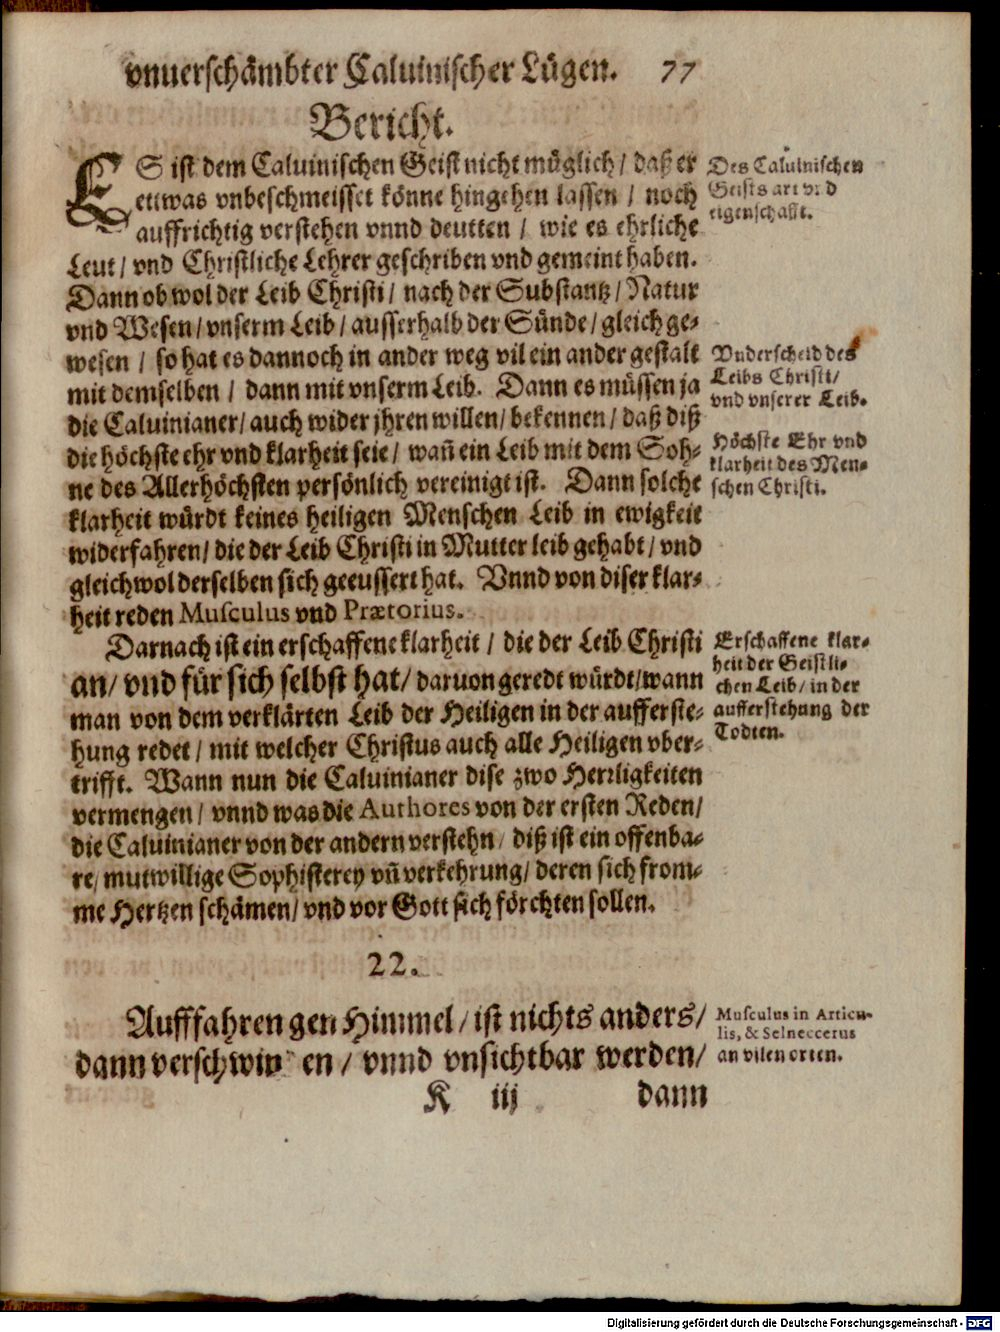 vnuerschämbter Caluinischer Lügen. 77
Bericht.
ES ist dem Caluinischen Geist nicht müglich / daß er
ettwas vnbeschmeisset könne hingehen lassen / noch
auffrichtig verstehen vnnd deutten / wie es ehrliche
Leut / vnd Christliche Lehrer geschriben vnd gemeint haben.
Dann ob wol der Leib Christi / nach der Substantz / Natur
vnd Wesen / vnserm Leib / ausserhalb der Sünde / gleich ge-
wesen / so hat es dannoch in ander weg vil ein ander gestalt
mit demselben / dann mit vnserm Leib. Dann es müssen ja
die Caluinianer / auch wider jhren willen / bekennen / daß diß
die höchste ehr vnd klarheit seie / wañ ein Leib mit dem Soh-
ne des Allerhöchsten persönlich vereinigt ist. Dann solche
klarheit würdt keines heiligen Menschen Leib in ewigkeit
widerfahren / die der Leib Christi in Mutter leib gehabt / vnd
gleichwol derselben sich geeussert hat. Vnnd von diser klar-
heit reden Musculus vnd Prætorius.
Darnach ist ein erschaffene klarheit / die der Leib Christi
an / vnd für sich selbst hat / daruon geredt würdt / wann
man von dem verklärten Leib der Heiligen in der aufferste-
hung redet / mit welcher Christus auch alle Heiligen vber-
trifft. Wann nun die Caluinianer dise zwo Herrligkeiten
vermengen / vnnd was die Authores von der ersten Reden /
die Caluinianer von der andern verstehn / diß ist ein offenba-
re / mutwillige Sophisterey vñ verkehrung / deren sich from-
me Hertzen schämen / vnd vor Gott sich förchten sollen.
22.
Aufffahren gen Himmel / ist nichts anders /
dann verschwin en / vnnd vnsichtbar werden /
K iij dann
Des Caluinischen
Geists art vnd
eigenschafft.
Vnderscheid des
Leibs Christi /
vnd vnserer Leib.
Höchste Ehr vnd
klarheit des Men-
schen Christi.
Erschaffene klar-
heit der Geistli-
chen Leib / in der
aufferstehung der
Todten.
Musculus in Articu-
lis, & Selneccerus
an vilen orten.
Digitalisierung gefördert durch die Deutsche Forschungsgemeinschaft - DFG